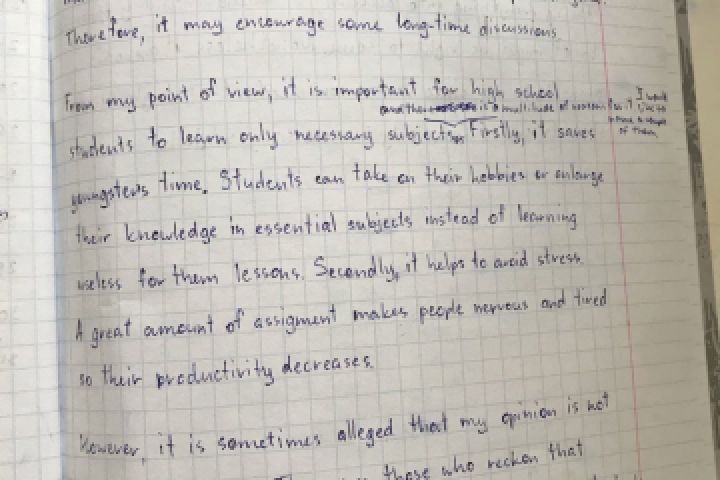 Therefore, it may encourage some long-time discussions.
From my point of view, it is important for high school
and there is a multitude of reasons for it I would
like to
of them
students to learn only necessary subjects. Firstly, it saves
youngsters time. Students can take on their hobbies or enlarge
their knowledge in essential subjects instead of learning
useless for them lessons. Secondly, it helps to avoid stress.
A great amount of assigment makes people nervous and tired
so their productivity decreases.
However, it is sometimes alleged that my opinion is not
those who reckon that